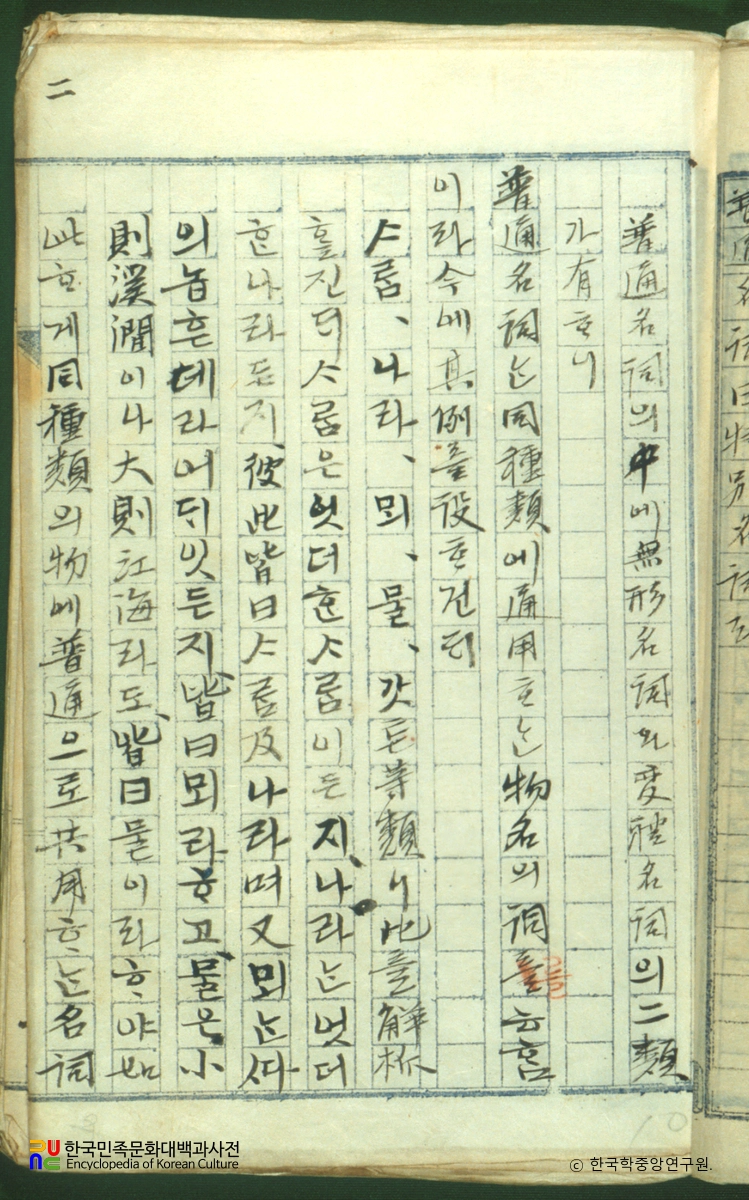 二
普通名詞의中에無形名詞와變體名詞의二類
가有ᄒᆞ니
普通名詞ᄂᆞᆫ同種類에通用ᄒᆞᄂᆞᆫ物名의詞를云홈
이라今에其例를設ᄒᆞ건ᄃᆡ
ᄉᆞᄅᆞᆷ、나라、뫼、물、갓ᄐᆞᆫ等類니此를解析
ᄒᆞᆯ진ᄃᆡᄉᆞᄅᆞᆷ은엇더ᄒᆞᆫᄉᆞᄅᆞᆷ이든지、나라ᄂᆞᆫ엇더
ᄒᆞᆫ나라든지、彼此皆曰ᄉᆞᄅᆞᆷ及나라며又뫼ᄂᆞᆫᄯᅡ
의놉흔데라어ᄃᆡ잇든지、皆曰뫼라ᄒᆞ고、물은小
則溪澗이나大則江海라도、皆曰물이라ᄒᆞ야如
此ᄒᆞ게同種類의物에普通으로共用ᄒᆞᄂᆞᆫ名詞
한국민족문화대백과사전
Encyclopedia of Korean Culture
ⓒ 한국학중앙연구원.